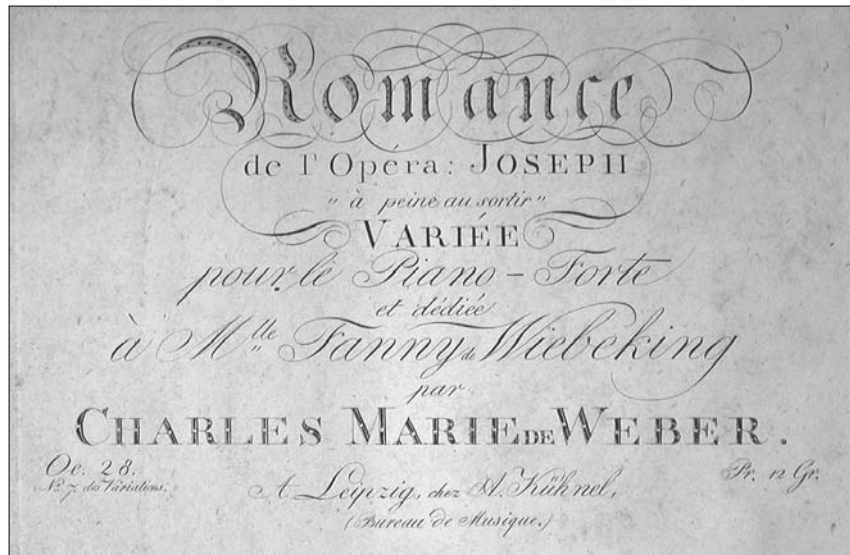 Romance
de l'Opéra: JOSEPH
"à peine au sortir"
VARIÉE
pour le Piano-Forte
et dédiée
à Mlle Fanny de Wiebeking
par
CHARLES MARIE DE WEBER.
Oe. 28.
No. 7. des Variations.
A Leipzig, chez A. Kühnel.
(Bureau de Musique.)
Pr. 12 Gr.